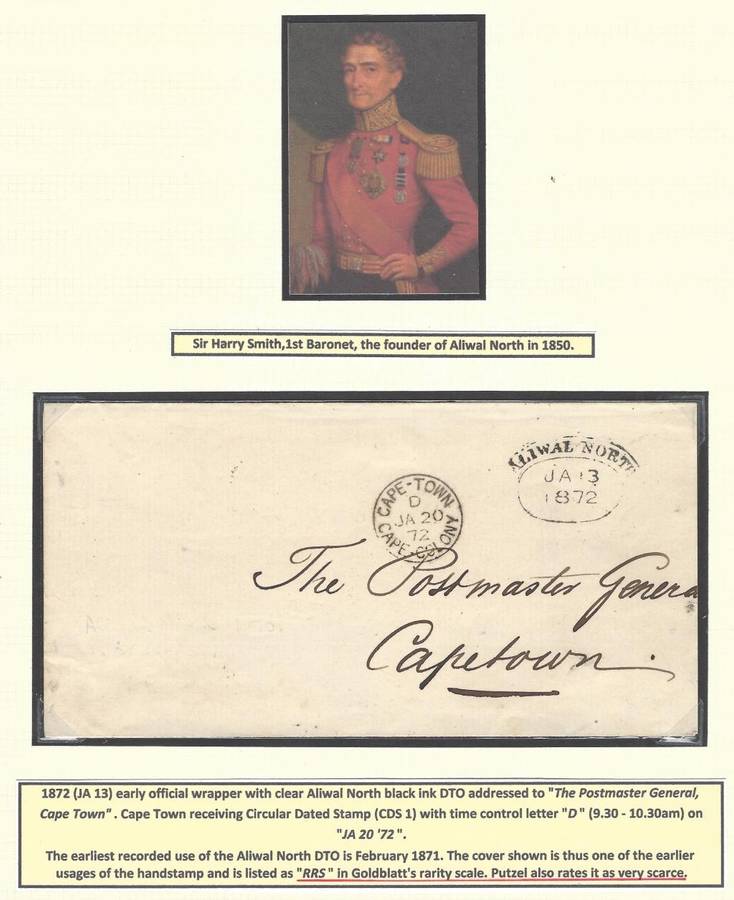 Sir Harry Smith,1st Baronet, the founder of Aliwal North in 1850.
ALIWAL NORTH
JA 13
1872
CAPE-TOWN
D
JA 20
72
CAPE-COLONY
The Postmaster Genera
Capetown.
1872 (JA 13) early official wrapper with clear Aliwal North black ink DTO addressed to "The Postmaster General,
Cape Town". Cape Town receiving Circular Dated Stamp (CDS 1) with time control letter "D" (9.30 - 10.30am) on
"JA 20 '72".
The earliest recorded use of the Aliwal North DTO is February 1871. The cover shown is thus one of the earlier
usages of the handstamp and is listed as "RRS" in Goldblatt's rarity scale. Putzel also rates it as very scarce.